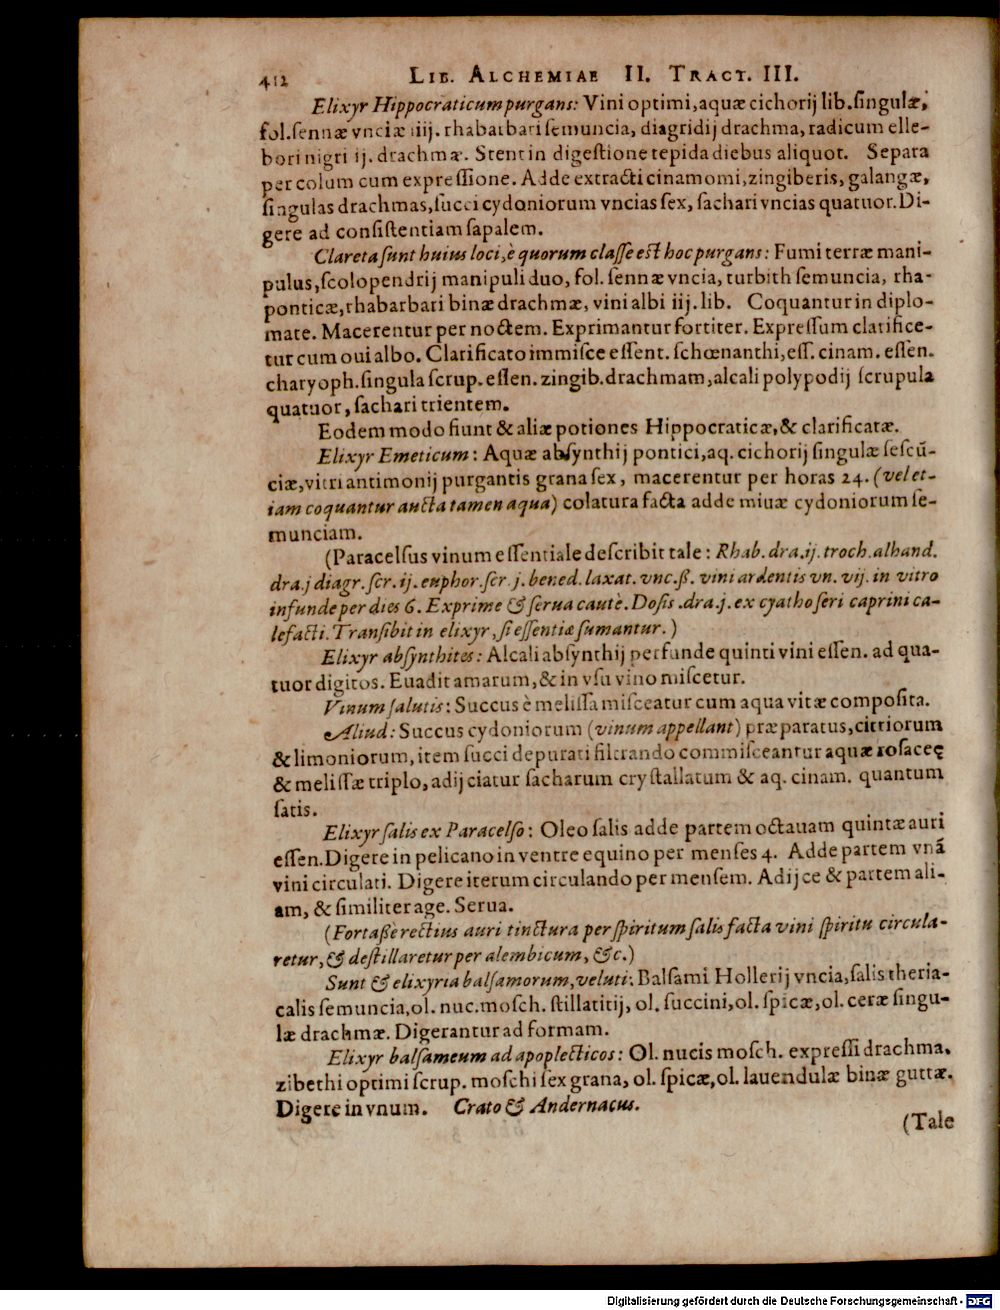 412 LIB. ALCHEMIAE II. TRACT. III.
Elixyr Hippocraticum purgans: Vini optimi, aquæ cichorij lib. ſingulæ,
fol. ſennæ vnciæ iiij. rhabarbari ſemuncia, diagridij drachma, radicum elle-
bori nigri ij. drachmæ. Stent in digeſtione tepida diebus aliquot. Separa
per colum cum expreſſione. Adde extracti cinamomi, zingiberis, galangæ,
ſingulas drachmas, ſucci cydoniorum vncias ſex, ſachari vncias quatuor. Di-
gere ad conſiſtentiam ſapalem.
Clareta ſunt huius loci, è quorum claſſe eſt hoc purgans: Fumi terræ mani-
pulus, ſcolopendrij manipuli duo, fol. ſennæ vncia, turbith ſemuncia, rha-
ponticæ, rhabarbari binæ drachmæ, vini albi iij. lib. Coquantur in diplo-
mate. Macerentur per noctem. Exprimantur fortiter. Expreſſum clarifice-
tur cum oui albo. Clarificato immiſce eſſent. ſchœnanthi, eſſ. cinam. eſſen.
charyoph. ſingula ſcrup. eſſen. zingib. drachmam, alcali polypodij ſcrupula
quatuor, ſachari trientem.
Eodem modo fiunt & aliæ potiones Hippocraticæ, & clarificatæ.
Elixyr Emeticum: Aquæ abſynthij pontici, aq. cichorij ſingulæ ſeſcũ-
ciæ, vitri antimonij purgantis grana ſex, macerentur per horas 24. (vel et-
iam coquantur aucta tamen aqua) colatura facta adde miuæ cydoniorum ſe-
munciam.
(Paracelſus vinum eſſentiale deſcribit tale: Rhab. dra. ij. troch. alhand.
dra. j diagr. ſcr. ij. euphor. ſcr. j. bened. laxat. vnc. ß. vini ardentis vn. vij. in vitro
infunde per dies 6. Exprime & ſerua cautè. Doſis. dra. j. ex cyatho ſeri caprini ca-
lefacti. Tranſibit in elixyr, ſi eſſentiæ ſumantur.)
Elixyr abſynthites: Alcali abſynthij perfunde quinti vini eſſen. ad qua-
tuor digitos. Euadit amarum, & in vſu vino miſcetur.
Vinum ſalutis: Succus è meliſſa miſceatur cum aqua vitæ compoſita.
Aliud: Succus cydoniorum (vinum appellant) præparatus, citriorum
& limoniorum, item ſucci depurati filtrando commiſceantur aquæ roſaceę
& meliſſæ triplo, adijciatur ſacharum cryſtallatum & aq. cinam. quantum
ſatis.
Elixyr ſalis ex Paracelſo: Oleo ſalis adde partem octauam quintæ auri
eſſen. Digere in pelicano in ventre equino per menſes 4. Adde partem vnã
vini circulati. Digere iterum circulando per menſem. Adijce & partem ali-
am, & ſimiliter age. Serua.
(Fortaße rectius auri tinctura per ſpiritum ſalis facta vini ſpiritu circula-
retur, & deſtillaretur per alembicum, &c.)
Sunt & elixyria balſamorum, veluti: Balſami Hollerij vncia, ſalis theria-
calis ſemuncia, ol. nuc. moſch. ſtillatitij, ol. ſuccini, ol. ſpicæ, ol. ceræ ſingu-
læ drachmæ. Digerantur ad formam.
Elixyr balſameum ad apoplecticos: Ol. nucis moſch. expreſſi drachma,
zibethi optimi ſcrup. moſchi ſex grana, ol. ſpicæ, ol. lauendulæ binæ guttæ.
Digere in vnum. Crato & Andernacus.
(Tale
Digitalisierung gefördert durch die Deutsche Forschungsgemeinschaft - DFG